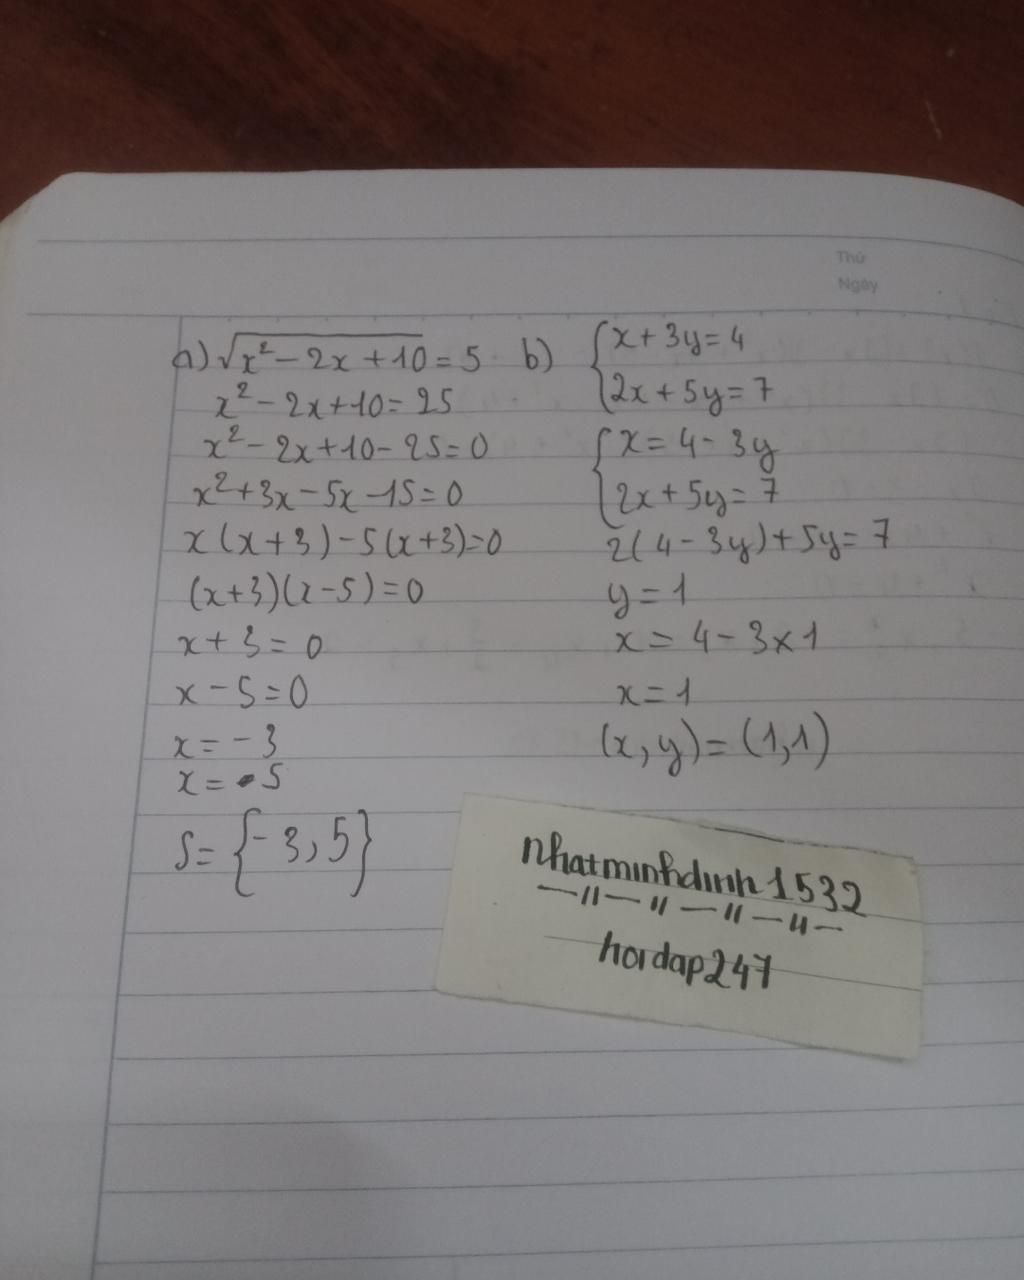 Thứ
Ngày
a) √(x² - 2x + 10) = 5
x² - 2x + 10 = 25
x² - 2x + 10 - 25 = 0
x² + 3x - 5x - 15 = 0
x(x + 3) - 5(x + 3) = 0
(x + 3)(x - 5) = 0
x + 3 = 0
x - 5 = 0
x = - 3
x = 5
S = {- 3, 5}
b) { x + 3y = 4
2x + 5y = 7
{ x = 4 - 3y
2x + 5y = 7
2(4 - 3y) + 5y = 7
y = 1
x = 4 - 3 x 1
x = 1
(x, y) = (1,1)
nhatminhdinh1532
— // — // — // — // —
hoidap247